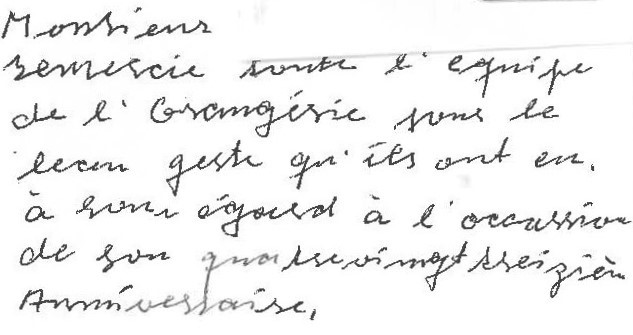 Monsieur
remercie toute l'equipe
de l'Orangérie pour le
beau geste qu'ils ont eu.
à son égard à l'occassion
de son quatrevingt treizièm
Anniversaire,